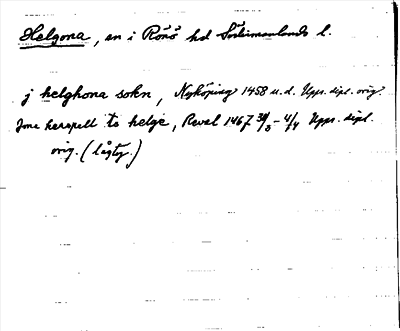 Helgona, sn i Rönö hd Södermanlands l.
j helghona sokn, Nyköping 1458 u.d. Upps. dipl. orig.
Jone harspell to helge, Revel 1467 30/3 - 4/4 Upps. dipl.
orig. (lågty.)